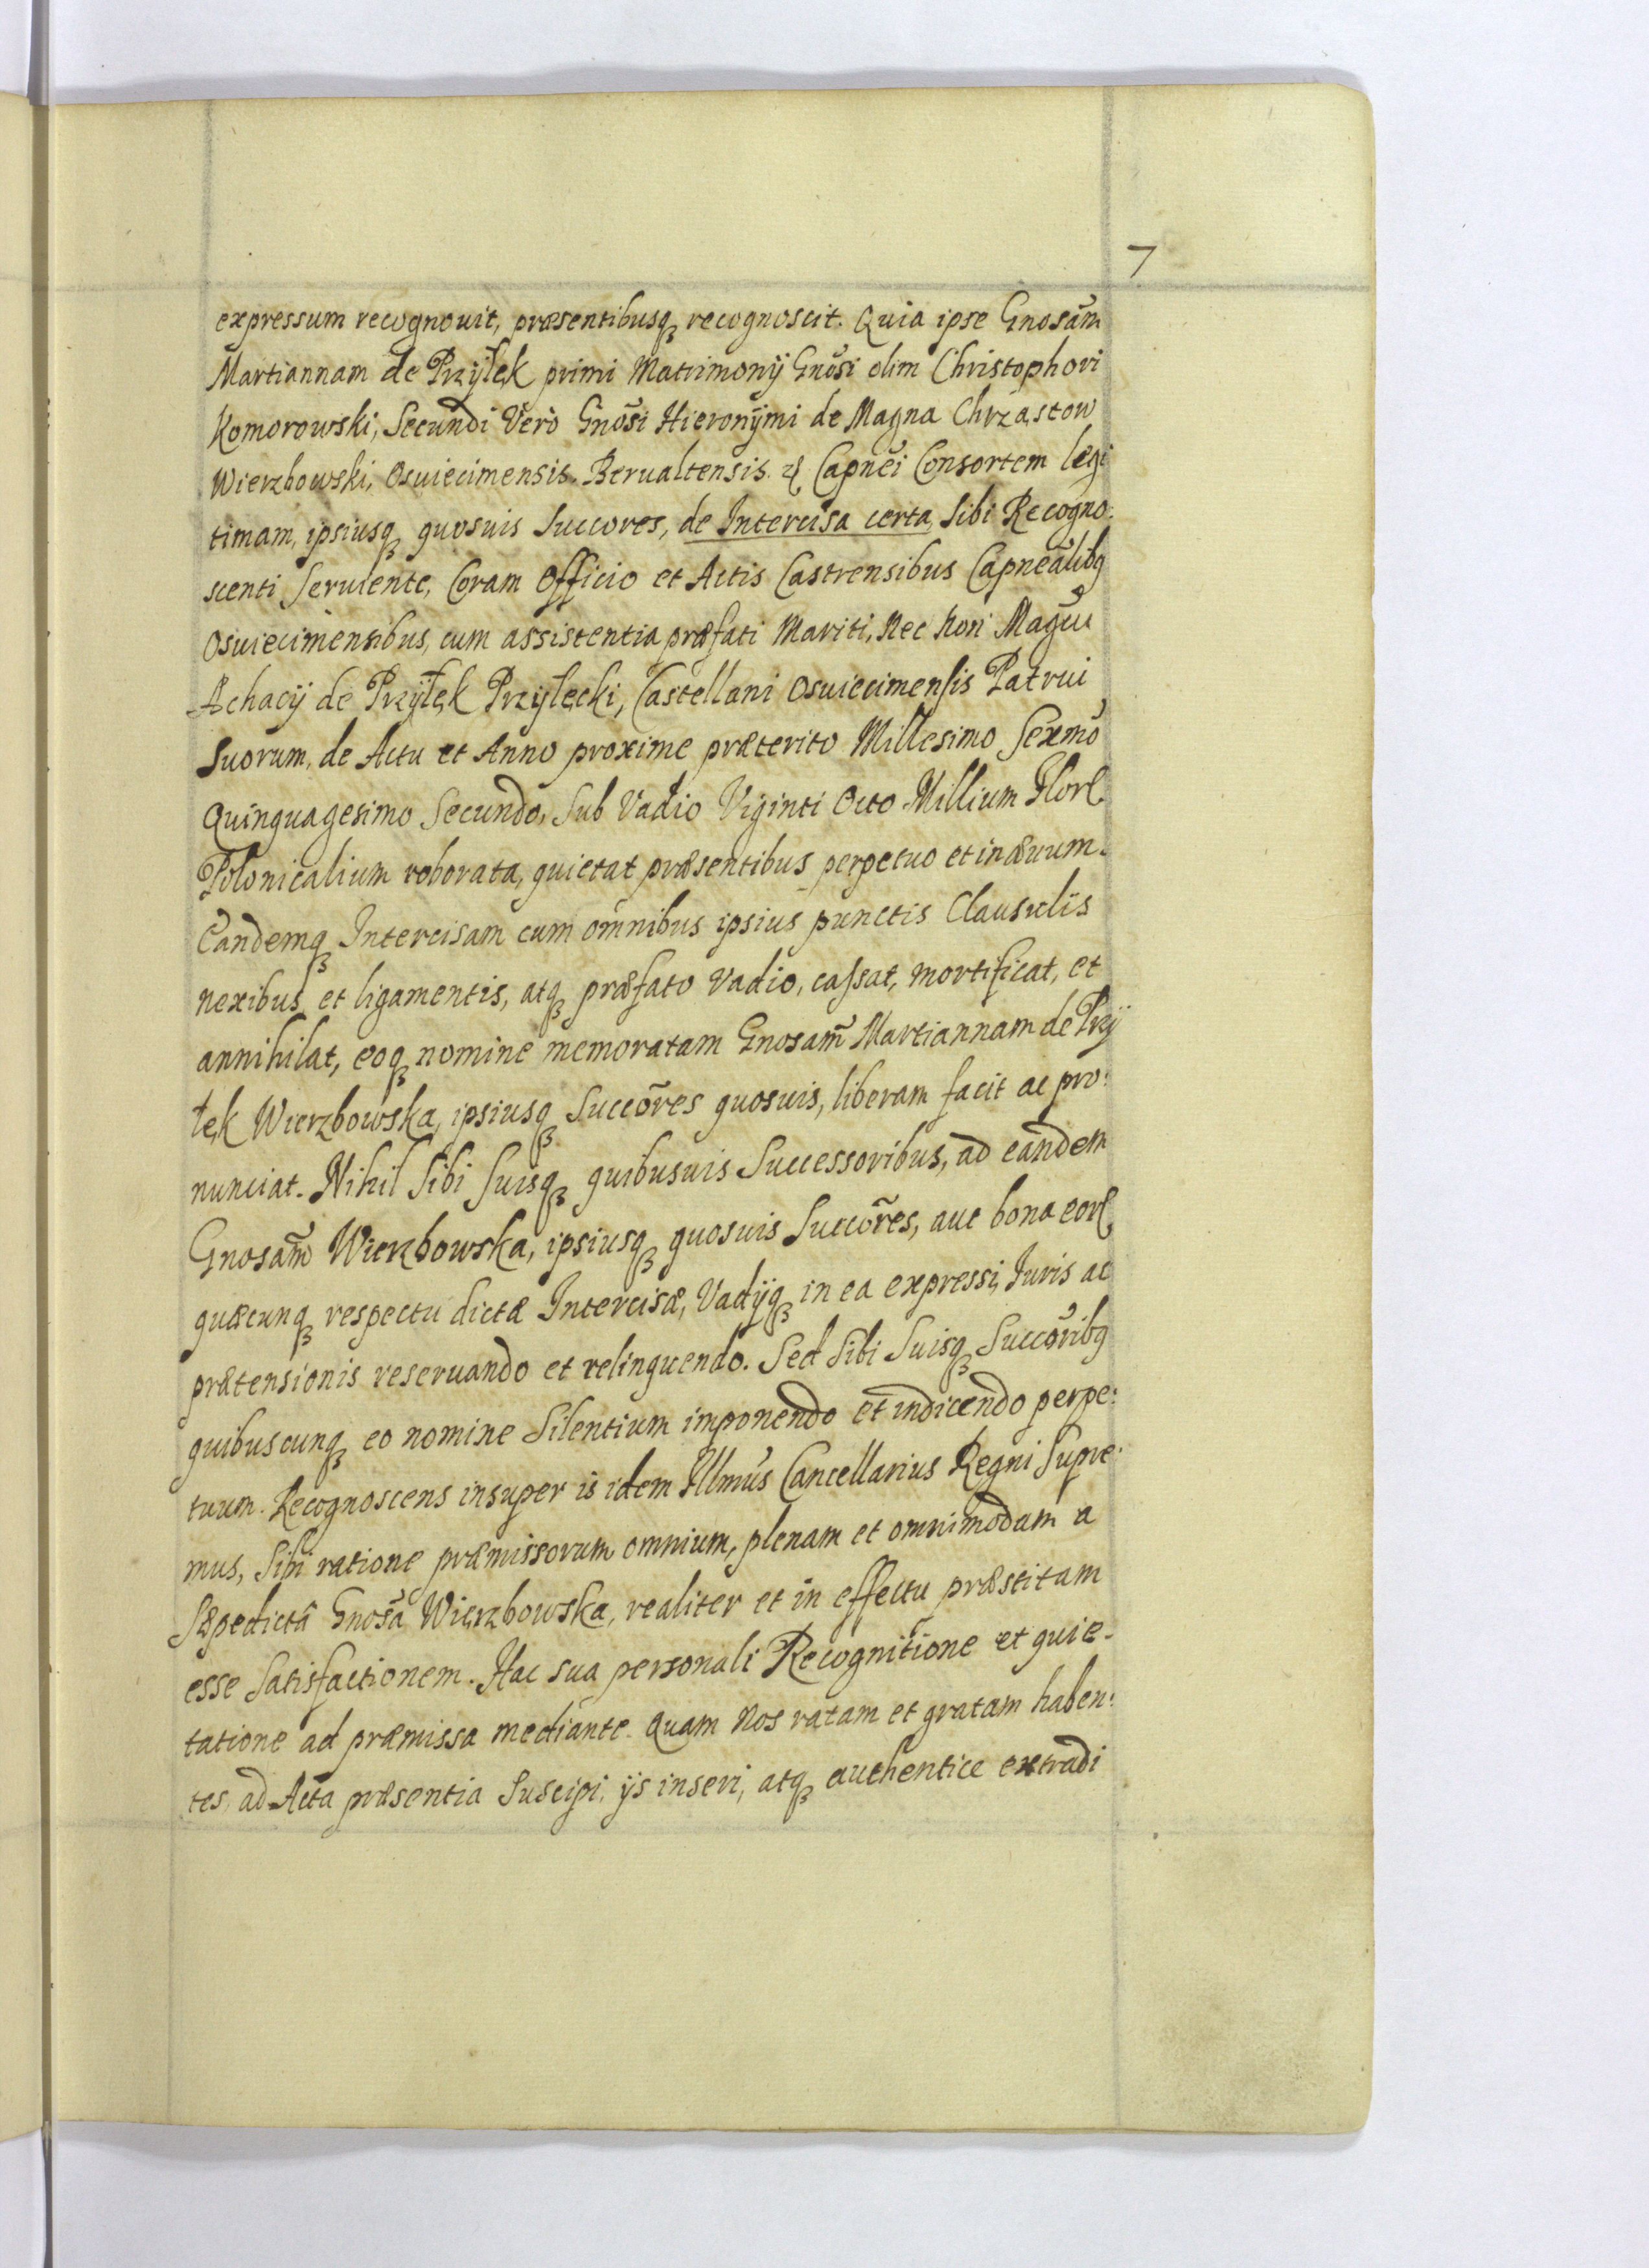 7
expressum recognouit, præsentibusq recognoscit. Quia ipse Gnosam̃
Martiannam de Przyłęk primi Matrimonÿ Gnõsi olim Christophori
Komorowski, Secundi Verò Gnõsi Hieronÿmi de Magna Chrząstow
Wierzbowski, Osuiecimensis, Berualtensis & Capnẽi Consortem legi
timam, ipsiusq quosuis Succores, de Intercisa certa, Sibi Recogno:
scenti Seruiente, Coram Officio et Actis Castrensibus Capneãlibq
Osuiecimensibus, cum assistentia præfati Mariti, Nec Non Magcĩ
Achacÿ de Przÿłęk Przyłęcki, Castellani Osuiecimensis Patrui
Suorum, de Actu et Anno proxime præterito Millesimo Sexmõ
Quinquagesimo Secundo, Sub Vadio Viginti Octo Millium Florꝭ
Polonicalium roborata, quietat præsentibus perpetuo et in æuum.
Eandemq Intercisam cum omnibus ipsius punctis Clausulis
nexibus et ligamentis, atq præfato Vadio, cassat, mortificat, et
annihilat, eoq nomine memoratam Gnosam̃ Martiannam de Przÿ
łęk Wierzbowska, ipsiusq Succõres quosuis, liberam facit ac pro:
nunciat. Nihil Sibi Suisq quibusuis Successoribus, ad eandem
Gnosam̃ Wierzbowska, ipsiusq quosuis Succõres, aut bona eorꝭ
quæcunq respectu dictæ Intercisæ, Vadÿq in ea expressi, Iuris ac
prætensionis reseruando et relinquendo. Sed Sibi Suisq Succõribq
quibuscunq eo nomine Silentium imponendo et indicendo perpe:
tuum. Recognoscens insuper is idem Illmũs Cancellarius Regni Supre:
mus, Sibi ratione præmissorum omnium, plenam et omnimodam a
Sæpedictâ Gnosã Wierzbowska, realiter et in effectu præstitam
esse Satisfactionem. Hac sua personali Recognitione et quie-
tatione ad præmissa mediante. Quam Nos ratam et gratam haben:
tes, ad Acta præsentia Suscipi, ÿs inseri, atq authentice extradi